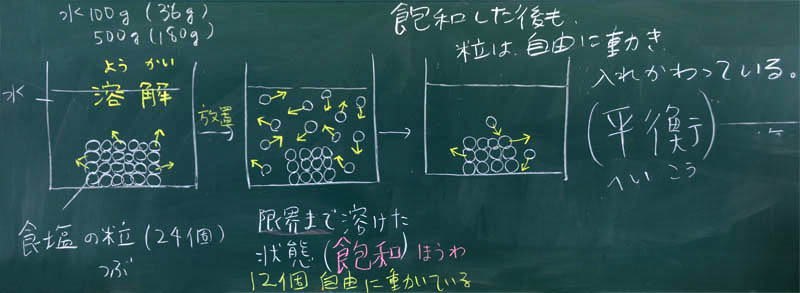 水100g (36g)
500g (180g)
よう かい
溶 解
水
食塩の粒 (24個)
つぶ
放置
限界まで溶けた
状態 (飽和) ほうわ
12個 自由に動いている
飽和した後も、
粒は、自由に動き
入れかわっている。
(平衡)
へい こう